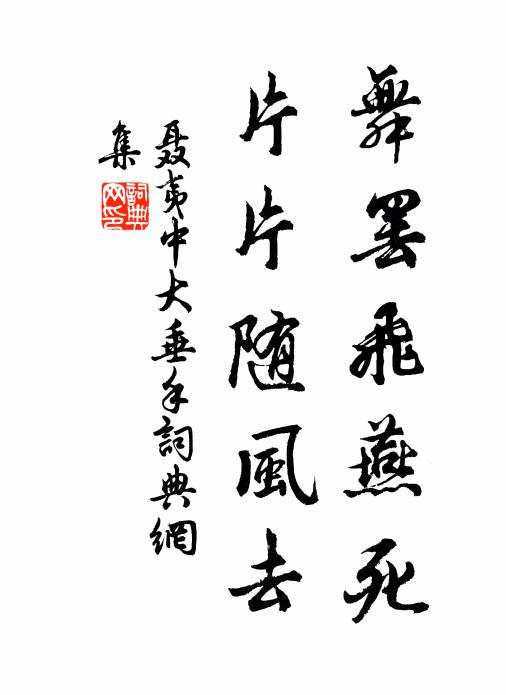 舞罢飛燕死
片片随風去
聂夷中大垂手詞典網
集
詞典
网印